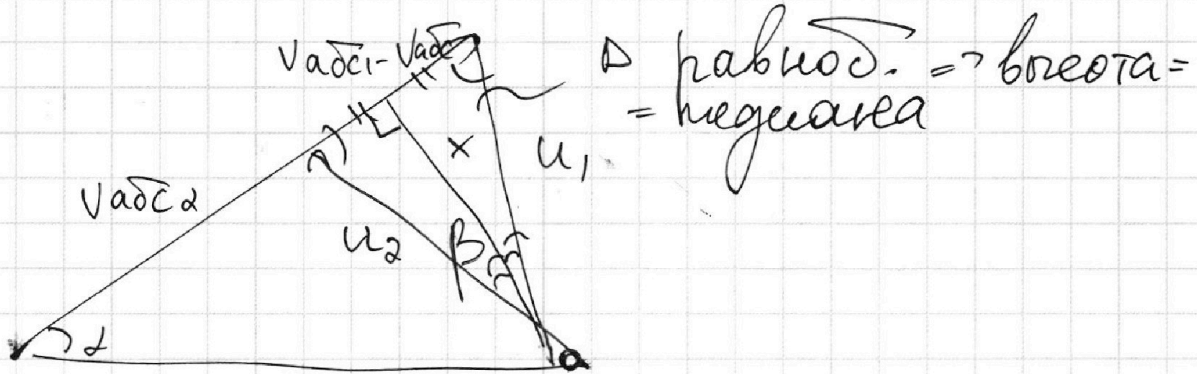 Vабс1 - Vабс
△ равноб. => высота =
= медиана
x
u1
Vабс2
u2
β
α